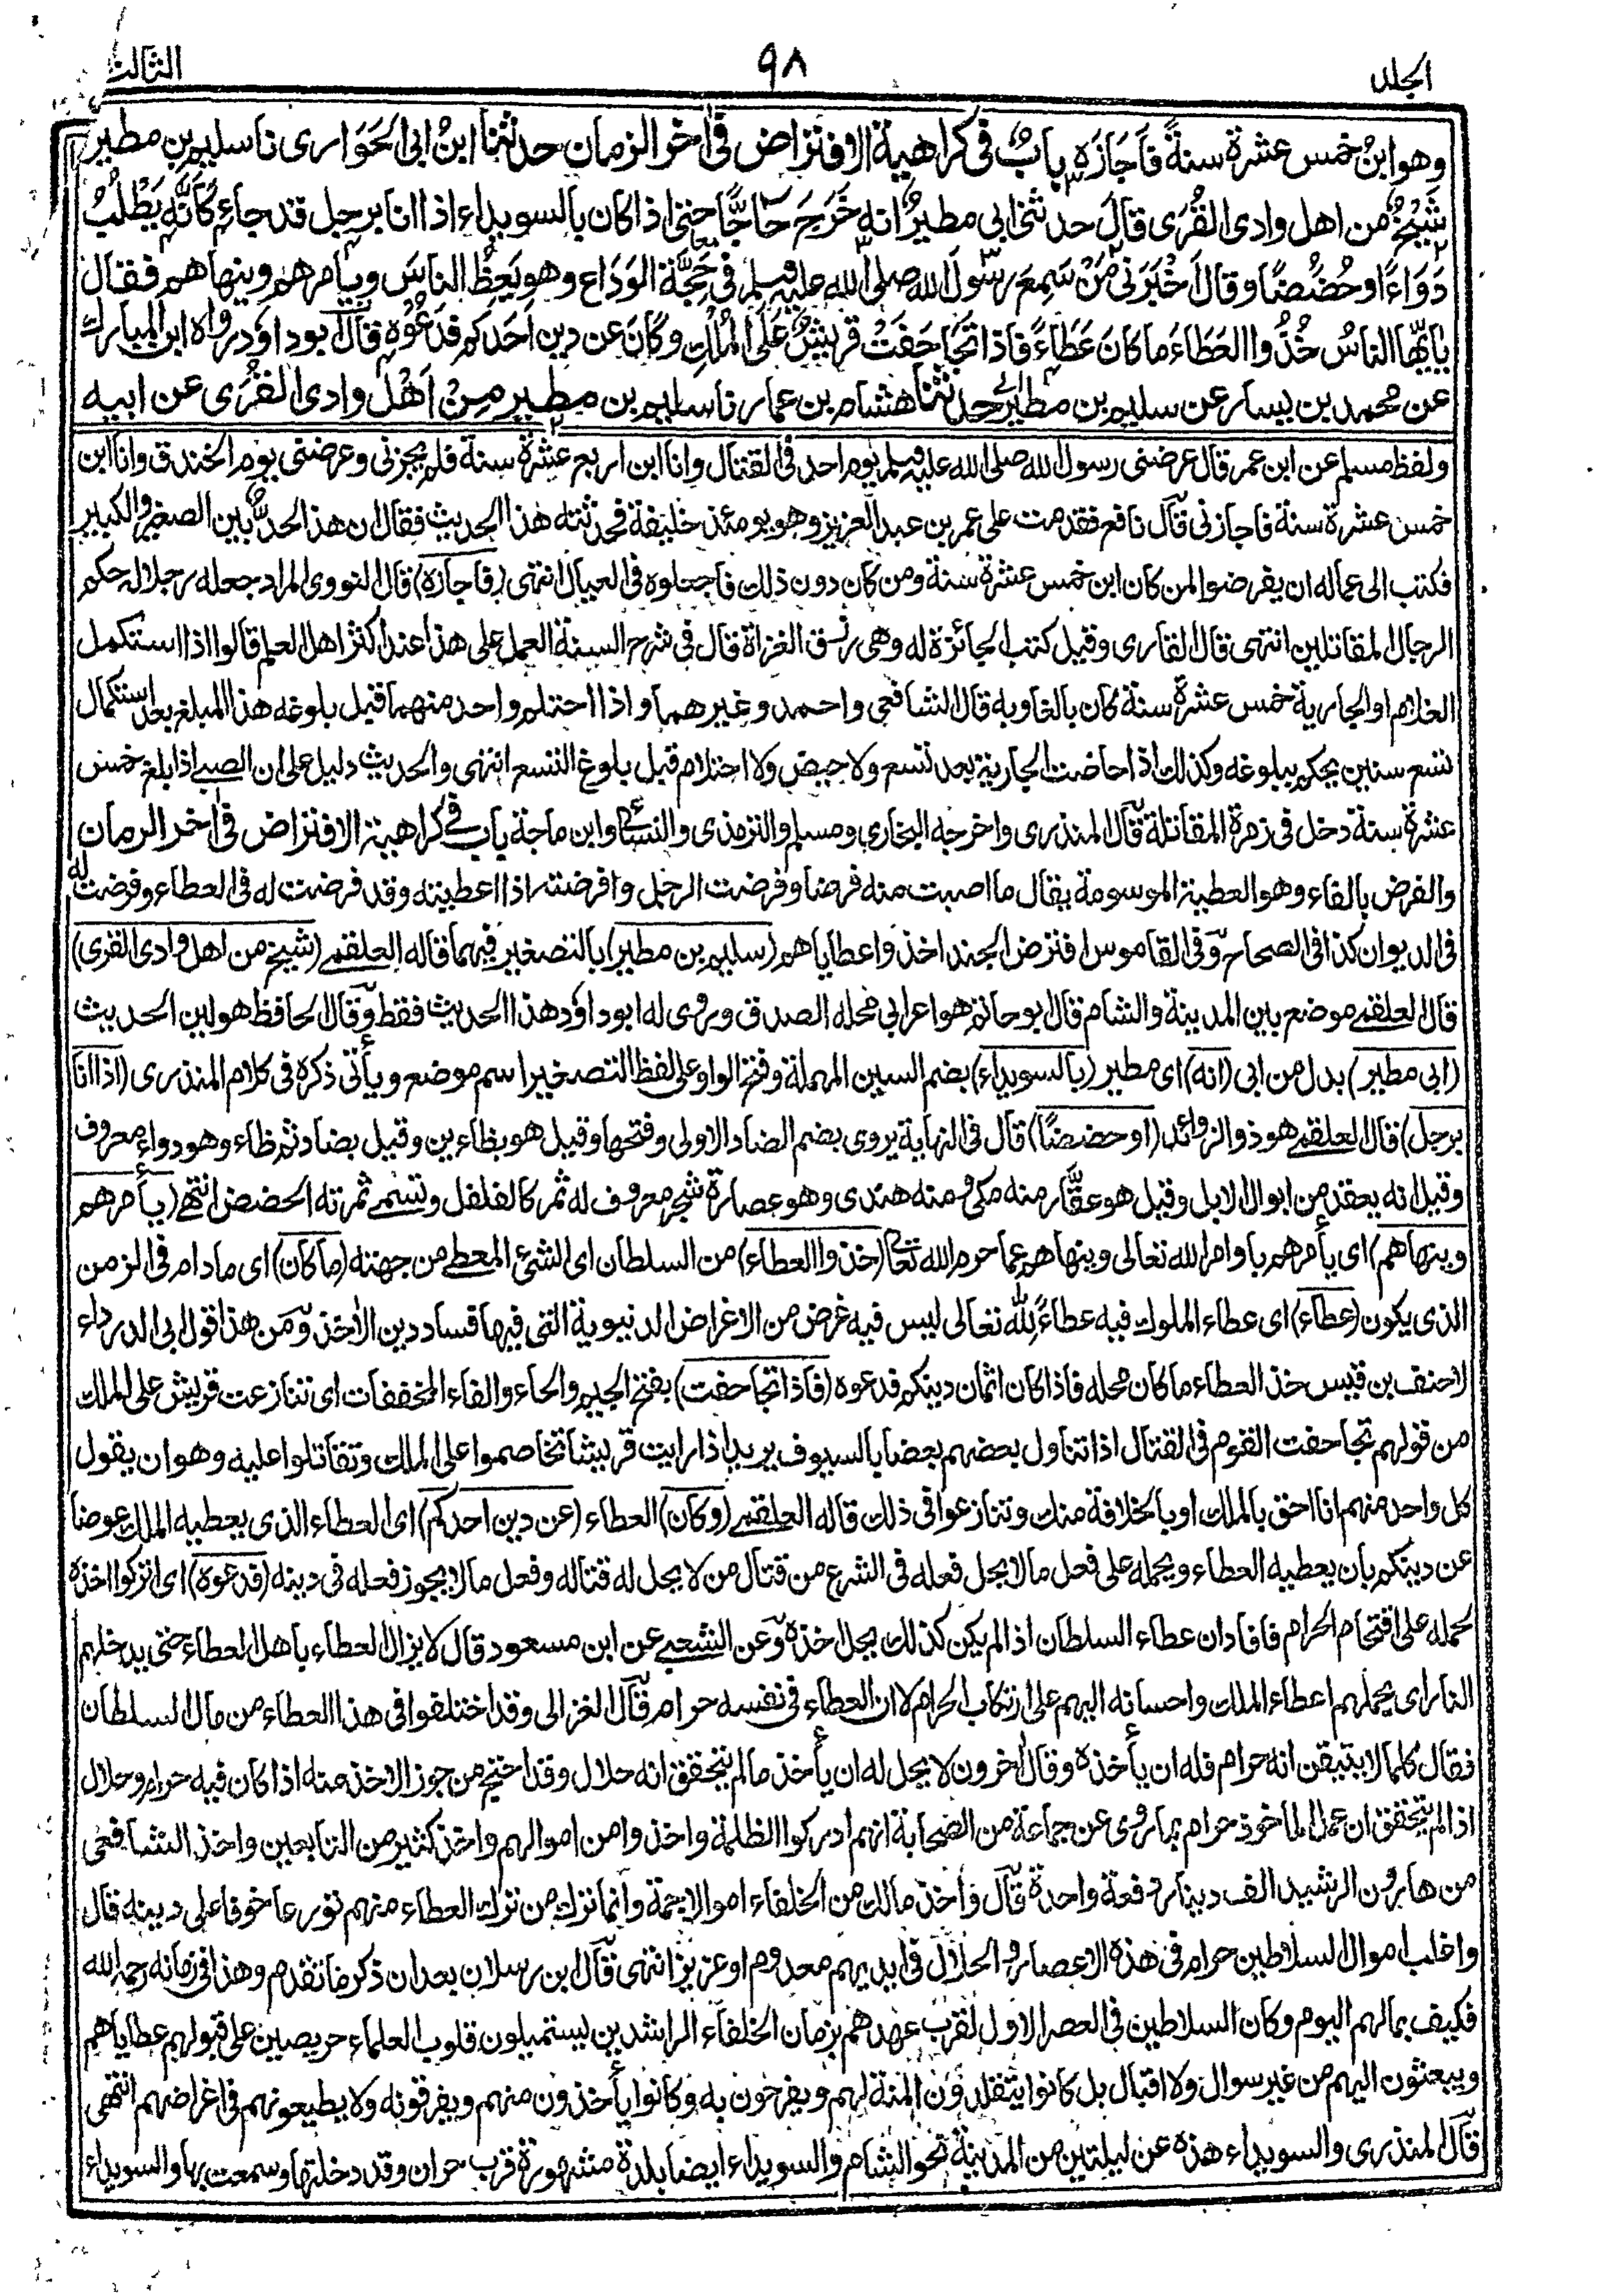 الجلد ٩٨ الثالث
وهو ابنُ خمس عشرة سنةً فاَجَازَه بابٌ فى كراهية الافتراض فى اٰخر الزمان حدثنا ابنُ ابى الحَوَارى نا سليم بن مطير
شَيْخٌ من اهل وادى القُرَى قال حدثنى ابى مطيرٌ انه خَرَجَ حَاجًّا حتى اذا كان بالسويداء اذا انا برجل قد جاء كَاَنَّه يَطْلُبُ
دَوَاءً او حُضُضًا وقال اَخْبَرَنى مَنْ سَمِعَ رسولَ الله صلى الله عليه وسلم فى حَجَّة الوَدَاع وهو يَعِظُ الناسَ ويأمرهم وينهاهم فقال
يا يّها الناسُ خُذُوا العَطَاءَ ما كانَ عَطَاءً فاذا تَجَاحَفَتْ قريشٌ عَلَى المُلْكِ وكَانَ عن دين اَحَدكم فدَعُوْه قال ابو داؤد رواه ابن المبارك
عن محمد بن يسار عن سليم بن مطير حدثنا هشام بن عمار نا سليم بن مطير مِنْ اَهْل وادى القُرَى عن ابيه
ولفظ مسلم عن ابن عمر قال عرضنى رسول الله صلى الله عليه وسلم يوم احد فى القتال وانا ابن اربع عشرة سنة فلم يجزنى وعرضنى يوم الخندق وانا ابن
خمس عشرة سنة فاجازنى قال نافع فقدمت على عمر بن عبد العزيز وهو يومئذ خليفة فحدثته هذا الحديث فقال ان هذا الحدّ بين الصغير والكبير
فكتب الى عماله ان يفرضوا لمن كان ابن خمس عشرة سنة ومن كان دون ذلك فاجعلوه فى العيال انتهى (فاجازه) قال النووى المراد جعله رجلا له حكم
الرجال المقاتلين انتهى قال القارى وقيل كتب الجائزة له وهى رزق الغزاة قال فى شرح السنة العمل على هذا عند اكثر اهل العلم قالوا اذا استكمل
الغلام او الجارية خمس عشرة سنة كان بالغا وبه قال الشافعى واحمد وغيرهما واذا احتلم واحد منهما قبل بلوغه هذا المبلغ بعد استكمال
تسع سنين يحكم ببلوغه وكذلك اذا حاضت الجارية بعد تسع ولا حيض ولا احتلام قبل بلوغ التسع انتهى والحديث دليل على ان الصبى اذا بلغ خمس
عشرة سنة دخل فى زمرة المقاتلة قال المنذرى واخرجه البخارى ومسلم والترمذى والنسائى وابن ماجة باب فى كراهية الافتراض فى اٰخر الزمان
والفرض بالفاء وهو العطية الموسومة يقال ما اصبت منه فرضا وفرضت الرجل وافرضته اذا اعطيته وقد فرضت له فى العطاء وفرضت له
فى الديوان كذا فى الصحاح وفى القاموس افترض الجند اخذوا عطاياهم (سليم بن مطير) بالتصغير فيهما قاله العلقمى (شيخ من اهل وادى القرى)
قال العلقمى موضع بين المدينة والشام قال ابو حاتم هو اعرابى محله الصدق وروى له ابو داؤد هذا الحديث فقط وقال الحافظ هو لين الحديث
(ابى مطير) بدل من ابى (انه) اى مطير (بالسويداء) بضم السين المهملة وفتح الواو على لفظ التصغير اسم موضع ويأتى ذكره فى كلام المنذرى (اذا انا
برجل) قال العلقمى هو ذو الزوائد (او حضضًا) قال فى النهاية يروى بضم الضاد الاولى وفتحها وقيل هو بظاءين وقيل بضاد ثم ظاء وهو دواء معروف
وقيل انه يعقد من ابوال الابل وقيل هو عقّار منه مكى ومنه هندى وهو عصارة شجر معروف له ثمر كالفلفل وتسمى ثمرته الحضض انتهى (يأمرهم
وينهاهم) اى يأمرهم باوامر الله تعالى وينهاهم عما حرم الله تعالى (خذوا العطاء) من السلطان اى الشئ المعطى من جهته (ما كان) اى ما دام فى الزمن
الذى يكون (عطاء) اى عطاء الملوك فيه عطاءً لله تعالى ليس فيه غرض من الاغراض الدنيوية التى فيها فساد دين الاٰخذ ومن هذا قول ابى الدرداء
لاحنف بن قيس خذ العطاء ما كان محله فاذا كان اثمان دينكم فدعوه (فاذا تجاحفت) بفتح الجيم والحاء والفاء المخففات اى تنازعت قريش على الملك
من قولهم تجاحفت القوم فى القتال اذا تناول بعضهم بعضا بالسيوف يريد اذا رايت قريشا تخاصموا على الملك وتقاتلوا عليه وهو ان يقول
كل واحد منهم انا احق بالملك او بالخلافة منك وتنازعوا فى ذلك قاله العلقمى (وكان) العطاء (عن دين احدكم) اى العطاء الذى يعطيه الملك عوضا
عن دينكم بان يعطيه العطاء ويحمله على فعل ما لا يحل فعله فى الشرع من قتال من لا يحل له قتاله وفعل ما لا يجوز فعله فى دينه (فدعوه) اى اتركوا اخذه
لحمله على اقتحام الحرام فافاد ان عطاء السلطان اذا لم يكن كذلك يحل اخذه وعن الشعبى عن ابن مسعود قال لا يزال العطاء باهل العطاء حتى يدخلهم
النار اى يحملهم اعطاء الملك واحسانه اليهم على ارتكاب الحرام لا ان العطاء فى نفسه حرام قال الغزالى وقد اختلفوا فى هذا العطاء من مال السلطان
فقال كلما لا يتيقن انه حرام فله ان يأخذه وقال اٰخرون لا يحل له ان يأخذ ما لم يتحقق انه حلال وقد احتج من جوز الاخذ منه اذا كان فيه حرام وحلال
اذا لم يتحقق ان عين المأخوذ حرام بما روى عن جماعة من الصحابة انهم ادركوا الظلمة واخذوا من اموالهم واخذ كثير من التابعين واخذ الشافعى
من هارون الرشيد الف دينار دفعة واحدة قال واخذ مالك من الخلفاء اموالا جمة وانما ترك من ترك العطاء منهم تورعا خوفا على دينه قال
واغلب اموال السلاطين حرام فى هذه الاعصار والحلال فى ايديهم معدوم او عزيز انتهى قال ابن رسلان بعد ان ذكر ما تقدم وهذا فى زمانه رحمه الله
فكيف بمالهم اليوم وكان السلاطين فى العصر الاول لقرب عهدهم بزمان الخلفاء الراشدين يستميلون قلوب العلماء حريصين على قبولهم عطاياهم
ويبعثون اليهم من غير سوال ولا اقبال بل كانوا يتقلدون المنة لهم ويفرحون به وكانوا يأخذون منهم ويفرقونه ولا يطيعونهم فى اغراضهم انتهى
قال المنذرى والسويداء هذه عن ليلتين من المدينة نحو الشام والسويداء ايضا بلدة مشهورة قرب حران وقد دخلتها وسمعت بها والسويداء